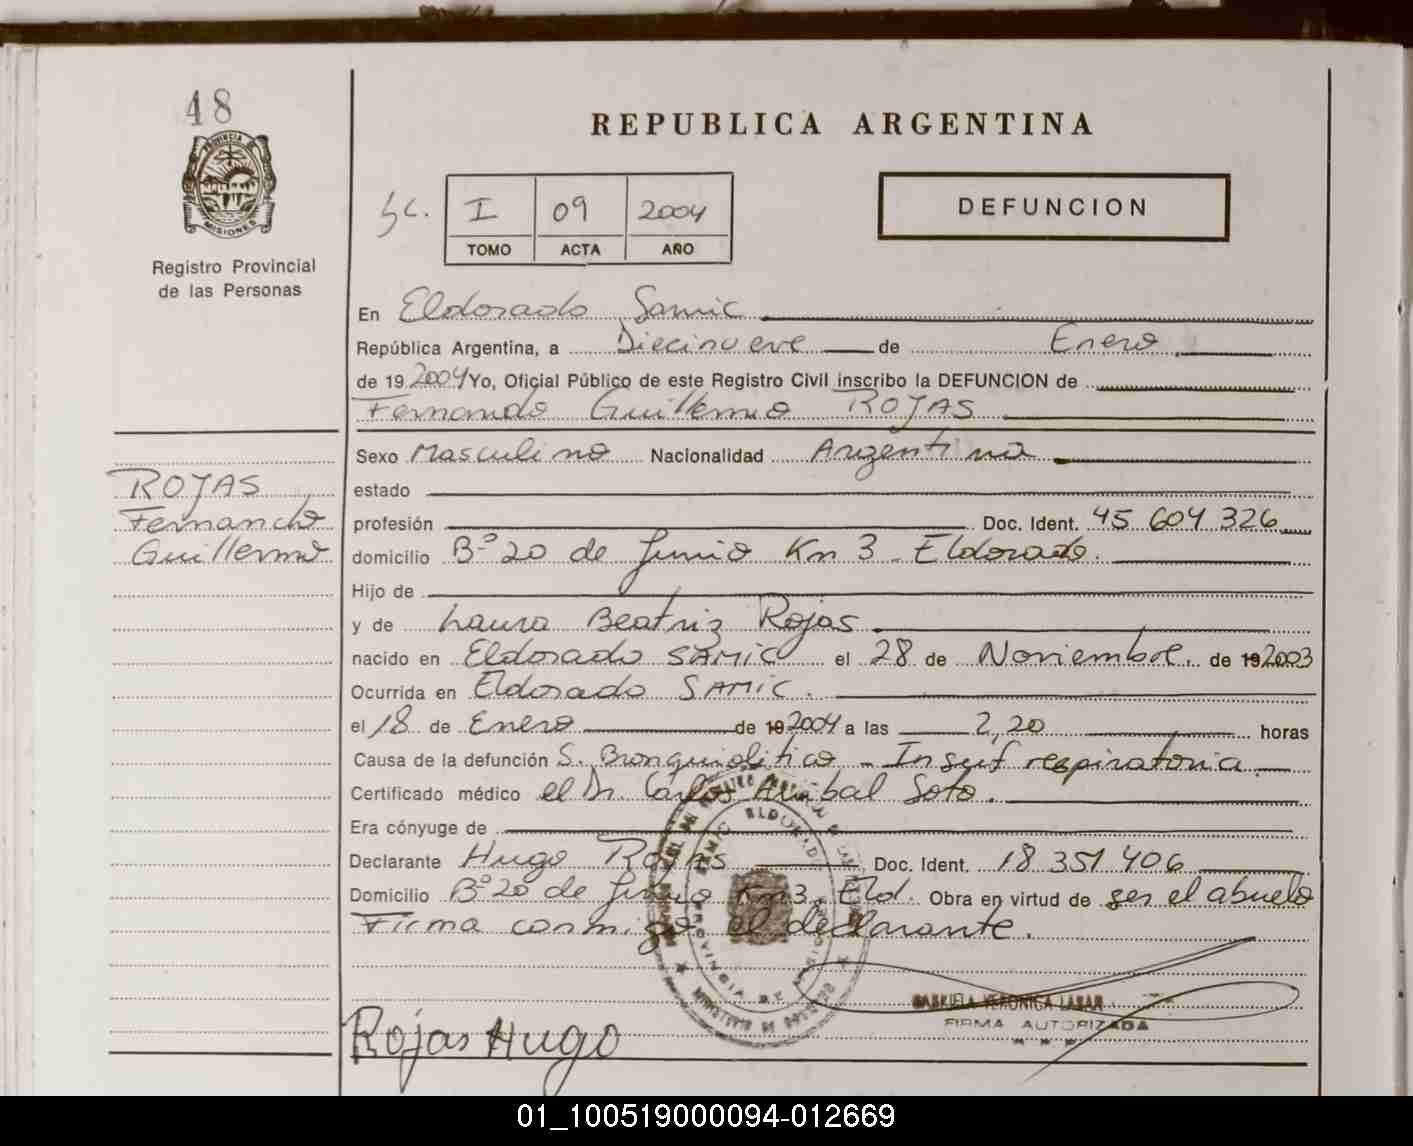 48
PROVINCIA DE
MISIONES
Registro Provincial
de las Personas
REPUBLICA ARGENTINA
Sc. I 09 2004
TOMO ACTA AÑO
DEFUNCION
En Eldorado Samic
República Argentina, a Diecinueve de Enero
de 19 2004 Yo, Oficial Público de este Registro Civil inscribo la DEFUNCION de
Fernando Guillermo ROJAS
Sexo Masculino Nacionalidad Argentina
ROJAS
Fernando
Guillermo
estado
profesión Doc. Ident. 45 604 326
domicilio Bº 20 de Junio Km 3 - Eldorado.
Hijo de
y de Laura Beatriz Rojas
nacido en Eldorado SAMIC el 28 de Noviembre. de 19 2003
Ocurrida en Eldorado SAMIC.
el 18 de Enero de 19 2004 a las 2,20 horas
Causa de la defunción S. Bronquiolitico - Insuf respiratoria.
Certificado médico el Dr. Carlos Anibal Soto.
Era cónyuge de
Declarante Hugo Rojas Doc. Ident. 18 351 406
Domicilio Bº 20 de Junio Km 3 Eld. Obra en virtud de ser el abuelo
Firma conmigo el declarante.
SAMIC ELDORADO
PROVINCIA DE MISIONES
MINISTERIO DE GOBIERNO
GABRIELA VERONICA
FIRMA AUTORIZADA
Rojas Hugo
01_100519000094-012669